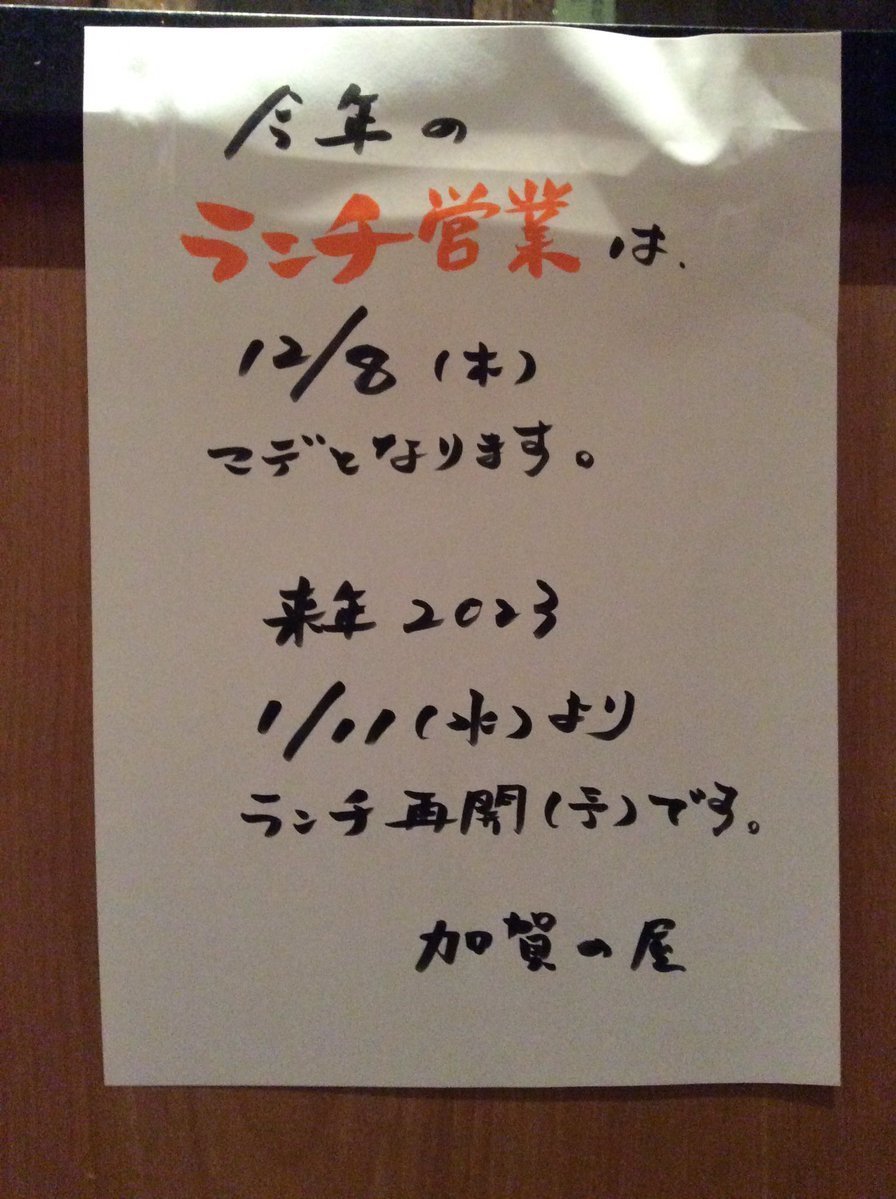 今年の
ランチ営業は、
12/8(木)
マデとなります。
来年2023
1/11(水)より
ランチ再開(予)です。
加賀の屋